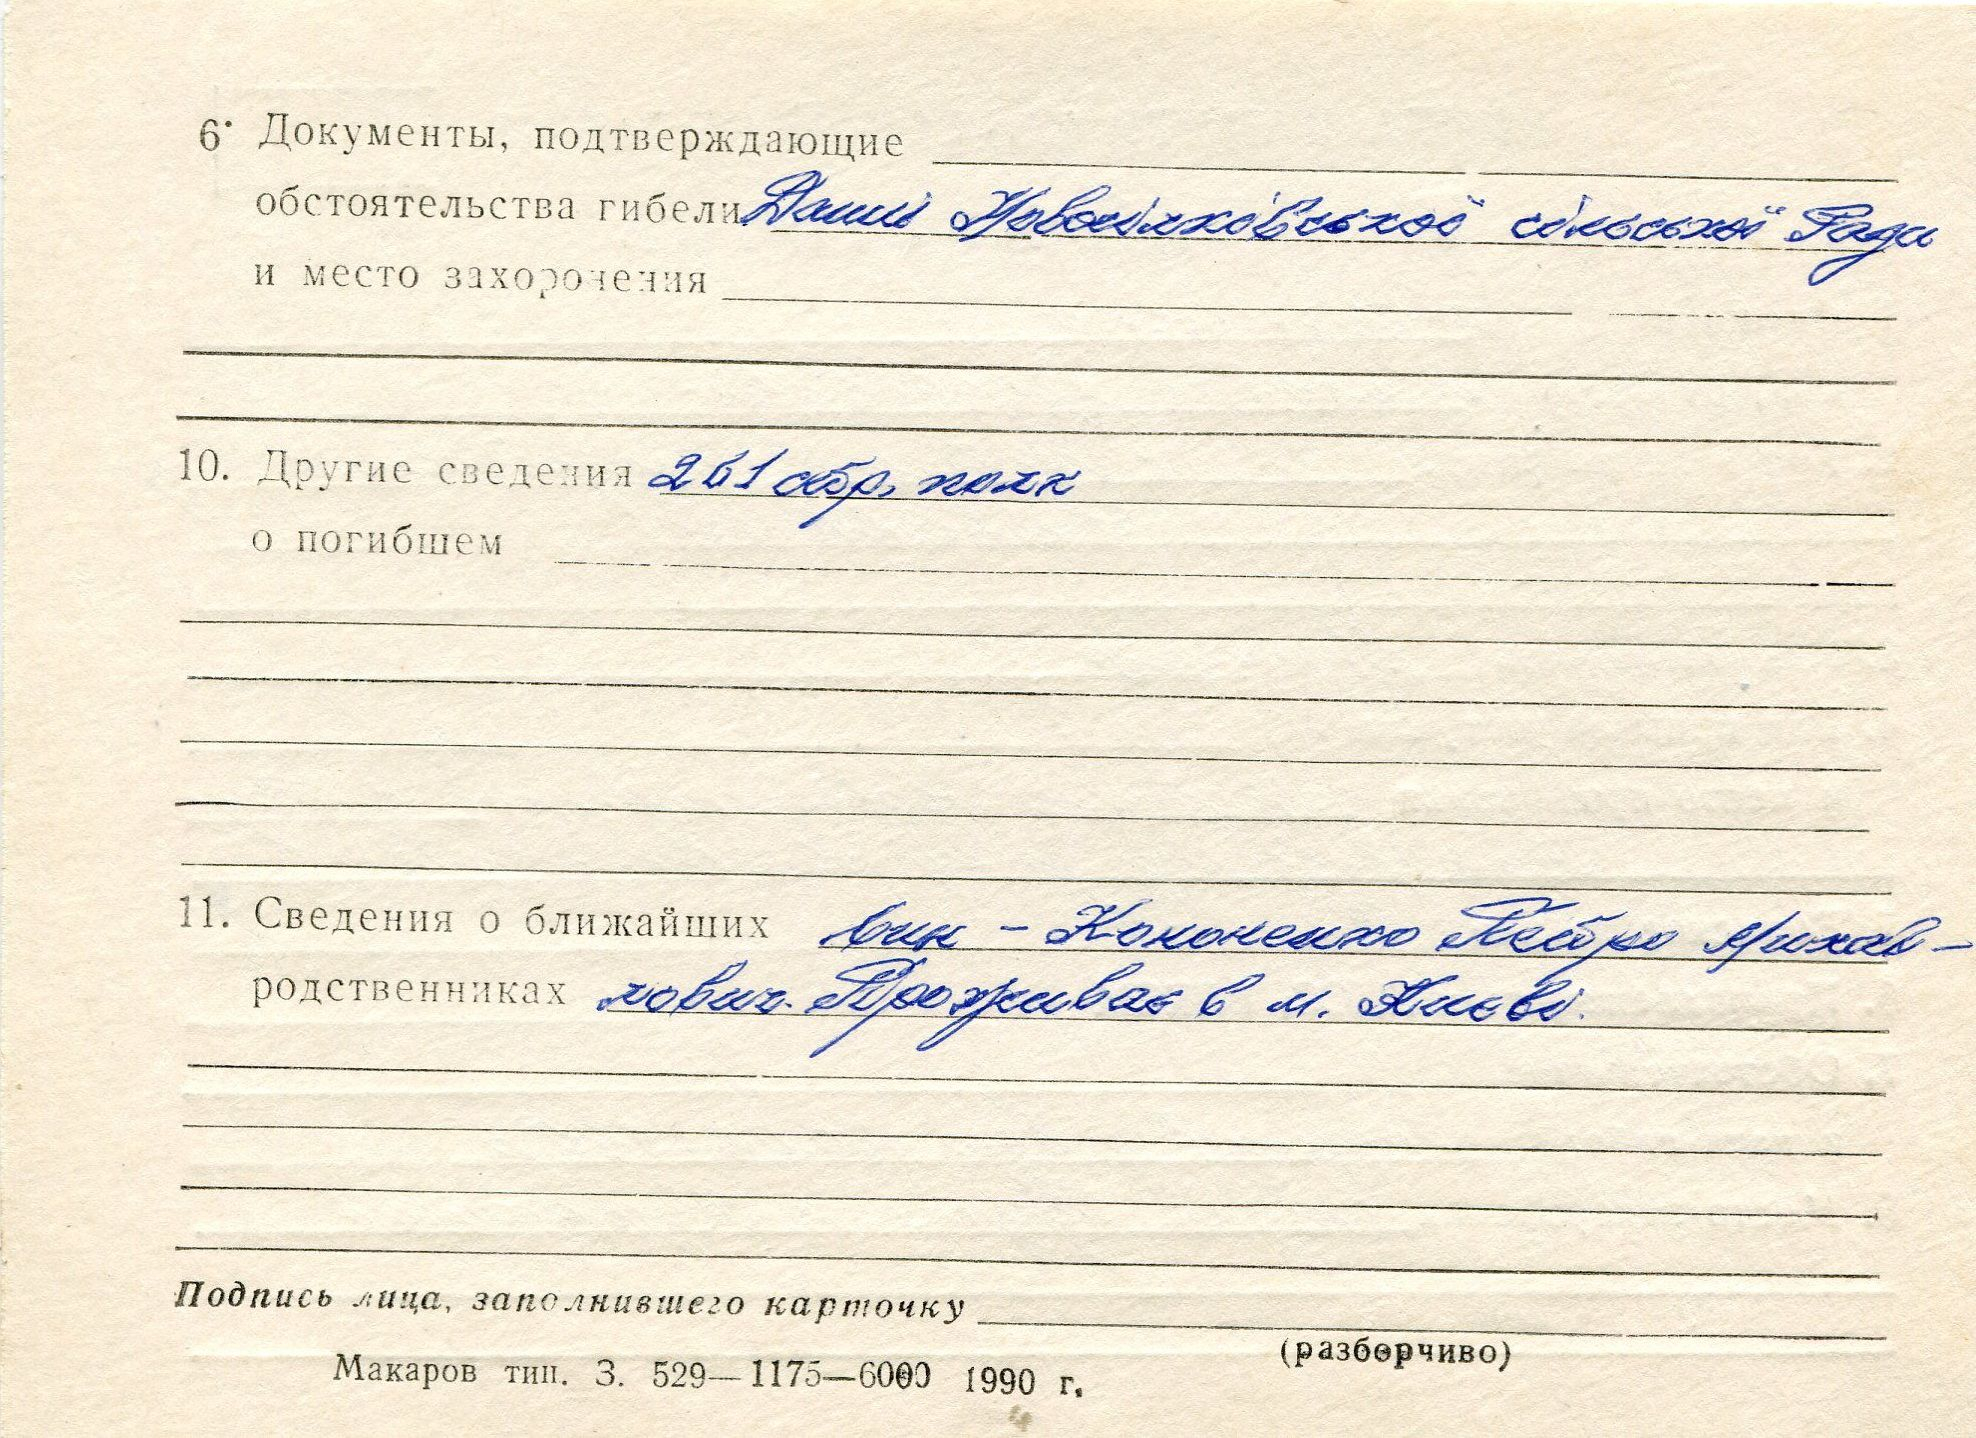 6. Документы, подтверждающие
обстоятельства гибели Данні сільської Ради
и место захоронения
10. Другие сведения 261 стр. полк
о погибшем
11. Сведения о ближайших син – Кононенко Петро Михай-
родственниках лович. Проживає в м. Києві.
Подпись лица, заполнившего карточку
(разборчиво)
Макаров тип. З. 529—1175—6000 1990 г.